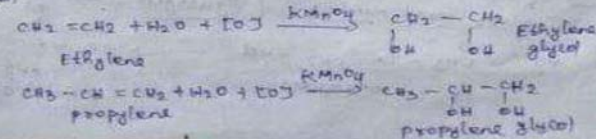 CH2 = CH2 + H2O + [O] KMnO4 → CH2 — CH2 Ethylene
OH OH glycol
Ethylene
CH3 — CH = CH2 + H2O + [O] KMnO4 → CH3 — CH — CH2
propylene OH OH
propylene glycol